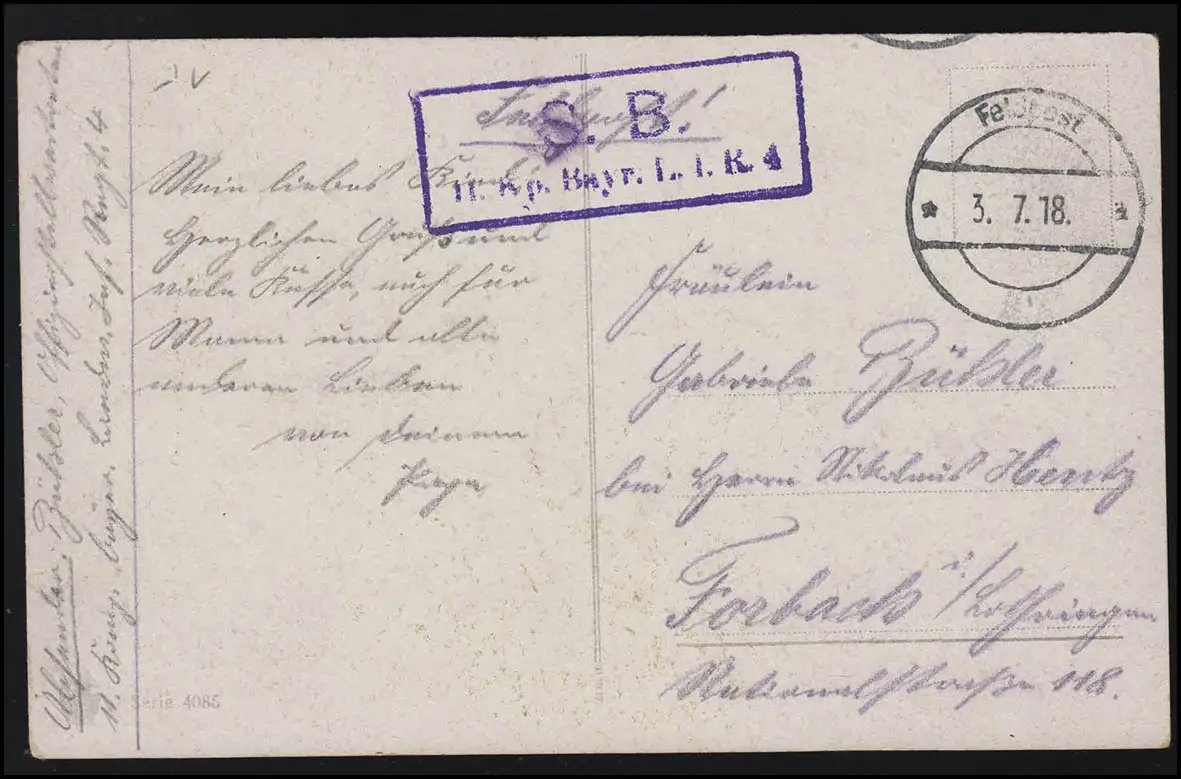 Feldpost!
S. B.
11. Kp. Bayr. L. I. R. 4
Feldpost
3. 7. 18.
Mein liebes Kind!
Herzlichen Gruß und
viele Küsse, auch für
Mama und alle
anderen Lieben
von Deinem
Papa
Fräulein
Gabriele
bei Herrn Nikolaus Hentz
Forbach i/Lothringen
Nationalstraße 118.
Absender:
11. Königl. bayer. Landw. Inf. Regt. 4
Serie 4085